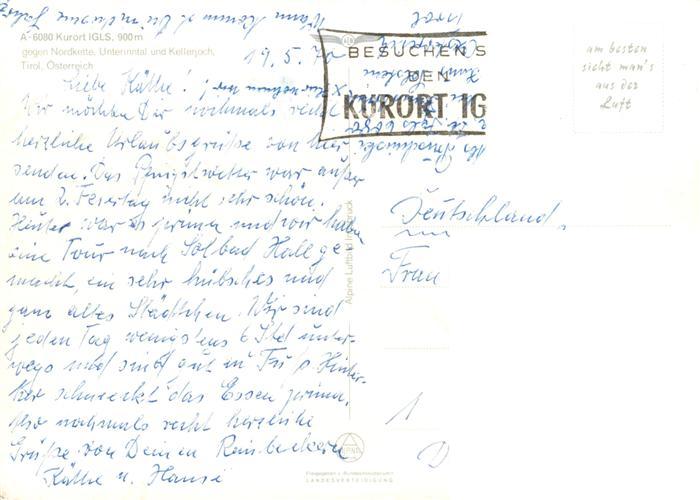 A-6080 Kurort IGLS, 900m
gegen Nordkette, Unterinntal und Kellerjoch,
Tirol, Österreich
19.5.70
Liebe Käthe!
Wir möchten Dir nochmals recht
herzliche Urlaubsgrüße von hier
senden. Das Pfingstwetter war außer
am 2. Feiertag nicht sehr schön.
Heute war es prima und wir haben
eine Tour nach Solbad Hall ge
macht, ein sehr hübsches und
ganz altes Städtchen. Wir sind
jeden Tag wenigstens 6 Std unter-
wegs und sind gut zu Fuß. Hinter-
her schmeckt das Essen prima.
Also nochmals recht herzliche
Grüße von Deinen Reinbeckern
Käthe u. Hansi
BESUCHEN S
DEN
KURORT IG
am besten
sieht man's
aus der
Luft
Deutschland
Frau
Alpine Luftbild Innsbruck
Freigegeben v. Bundesministerium f.
LANDESVERTEIDIGUNG